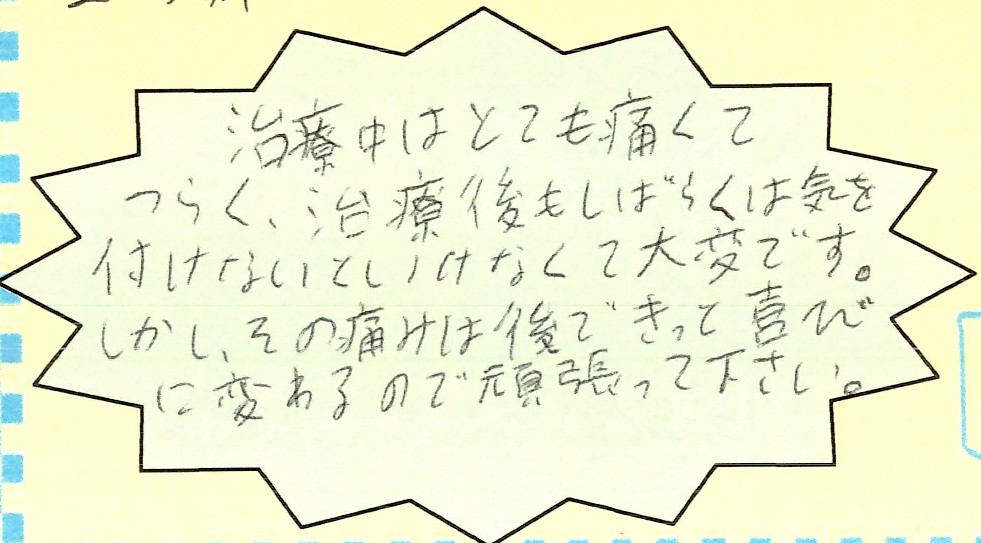 治療中はとても痛くて
つらく、治療後もしばらくは気を
付けないといけなくて大変です。
しかし、その痛みは後できっと喜び
に変わるので頑張って下さい。